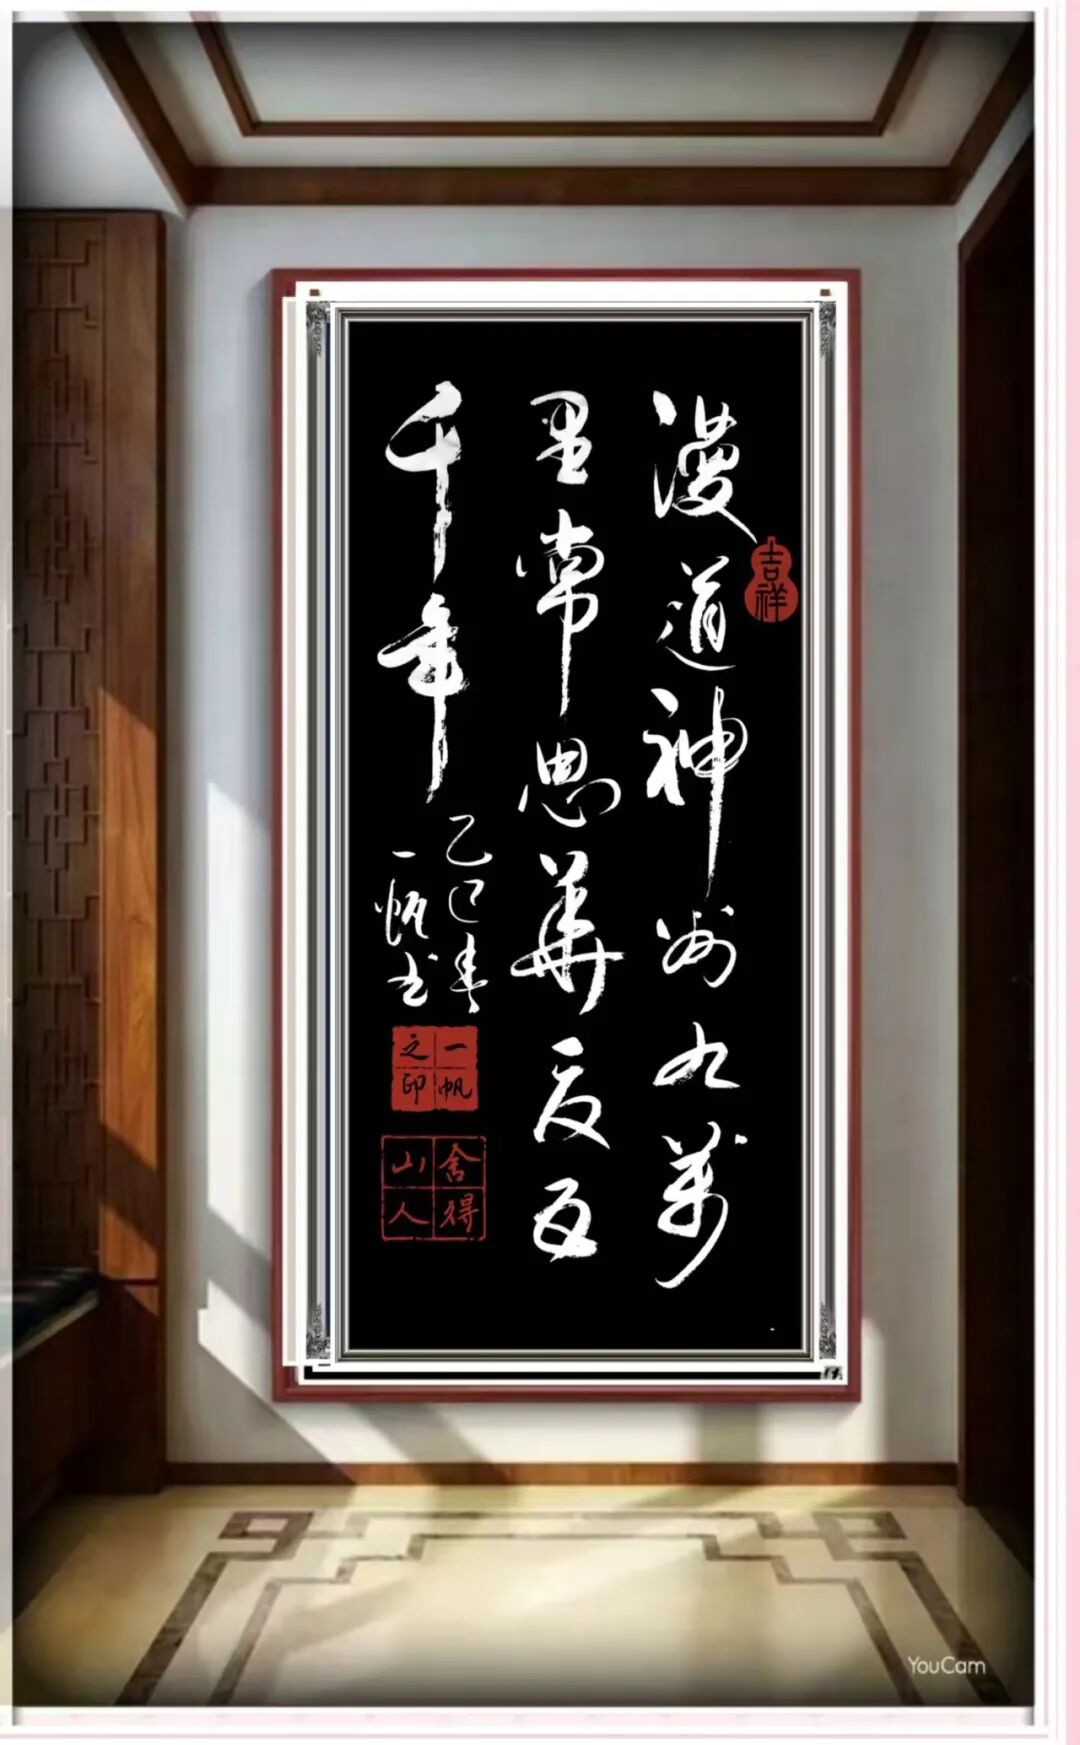 漫道神州九萬
里常思華夏五
千年
乙巳春
一帆书
吉祥
一帆之印
舍得山人
YouCam